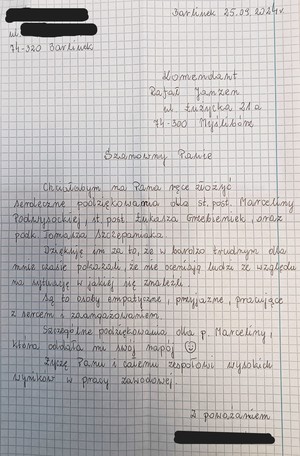 Barlinek 25.09.2024r.
ul
74-320 Barlinek
Komendant
Rafał Janzen
ul Łużycka 21a
74-300 Myślibórz
Szanowny Panie
Chciałabym na Pana ręce złożyć
serdeczne podziękowania dla st. post. Marceliny
Podwysockiej, st. post. Łukasza Grzebieniak, oraz
podk. Tomasza Szczepaniaka.
Dziękuję im za to, że w bardzo trudnym dla
mnie czasie pokazali, że nie oceniają ludzi ze względu
na sytuację w jakiej się znaleźli.
Są to osoby empatyczne, przyjazne, pracujące
z sercem i zaangażowaniem.
Szczególne podziękowania dla p. Marceliny,
która oddała mi swój napój
Życzę Panu i całemu zespołowi wysokich
wyników w pracy zawodowej.
Z poważaniem